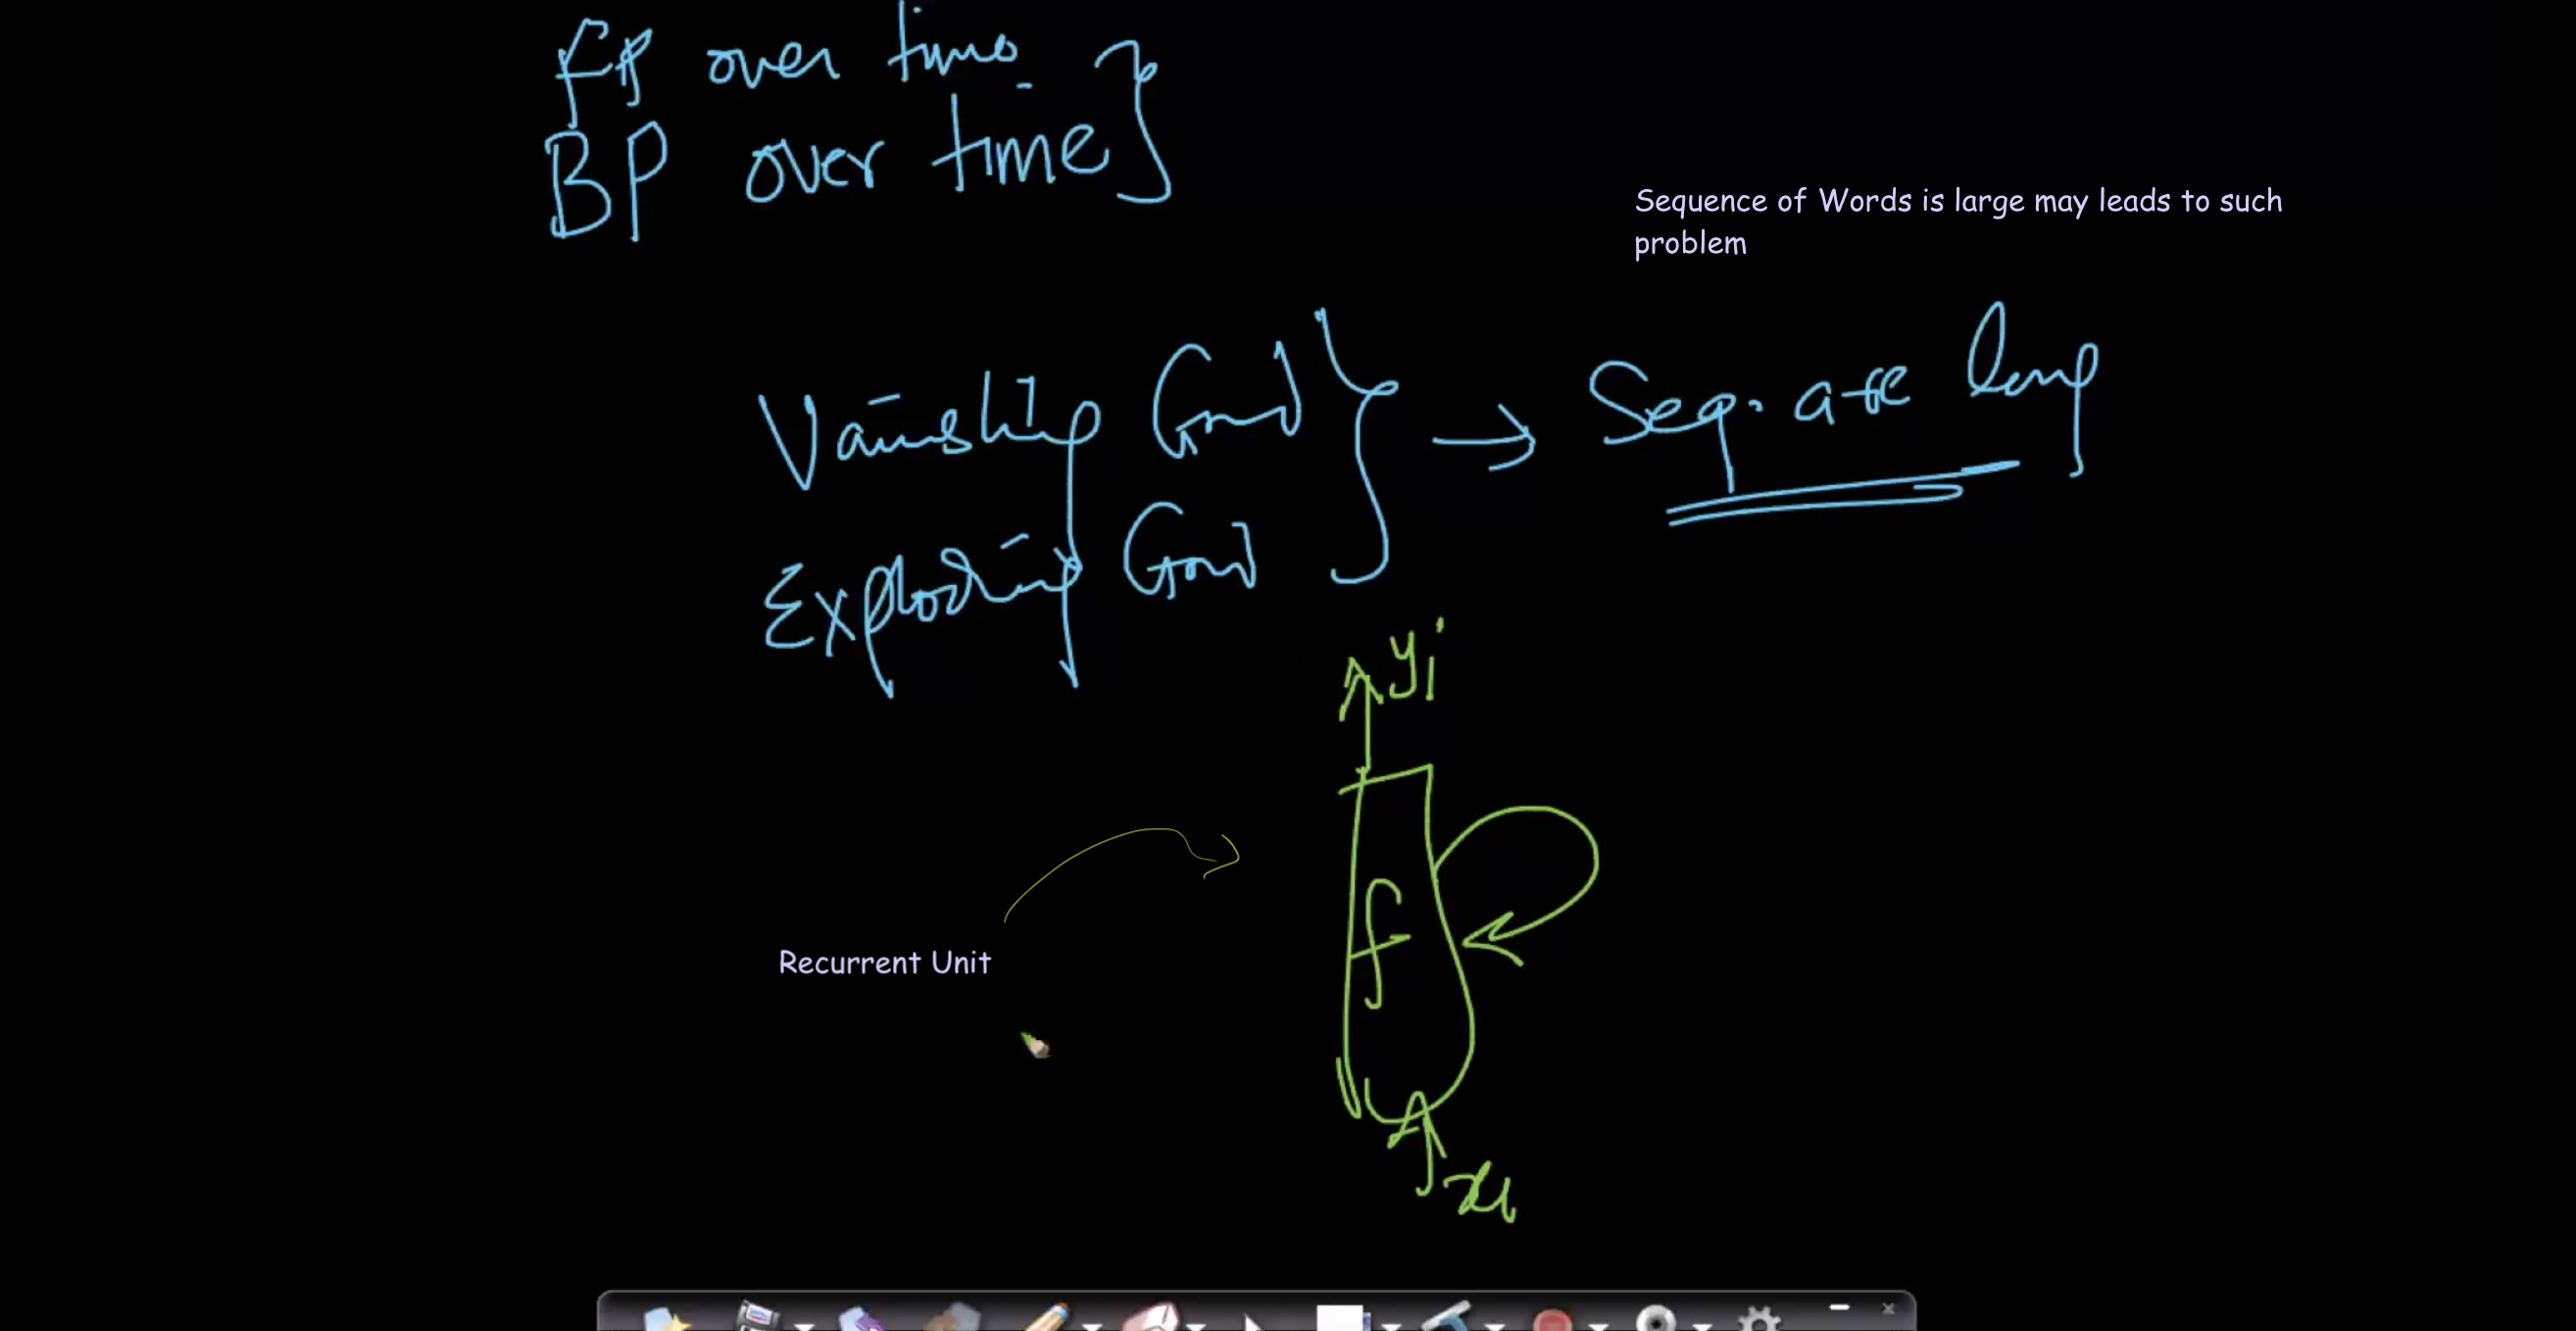 FP over time
BP over time
Sequence of Words is large may leads to such
problem
Vanishing Grad
Exploding Grad
→ Seq. are long
yi
f
Recurrent Unit
xi